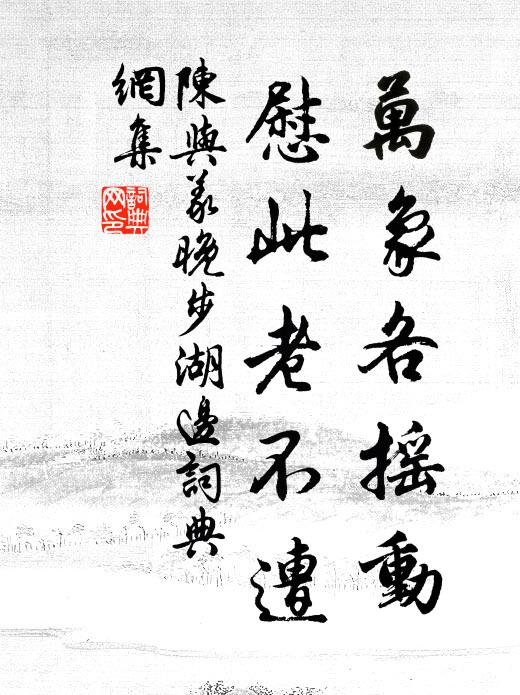 萬象各搖動
慰此老不遭
陳與義晚步湖邊詞典
網集
詞典
网印